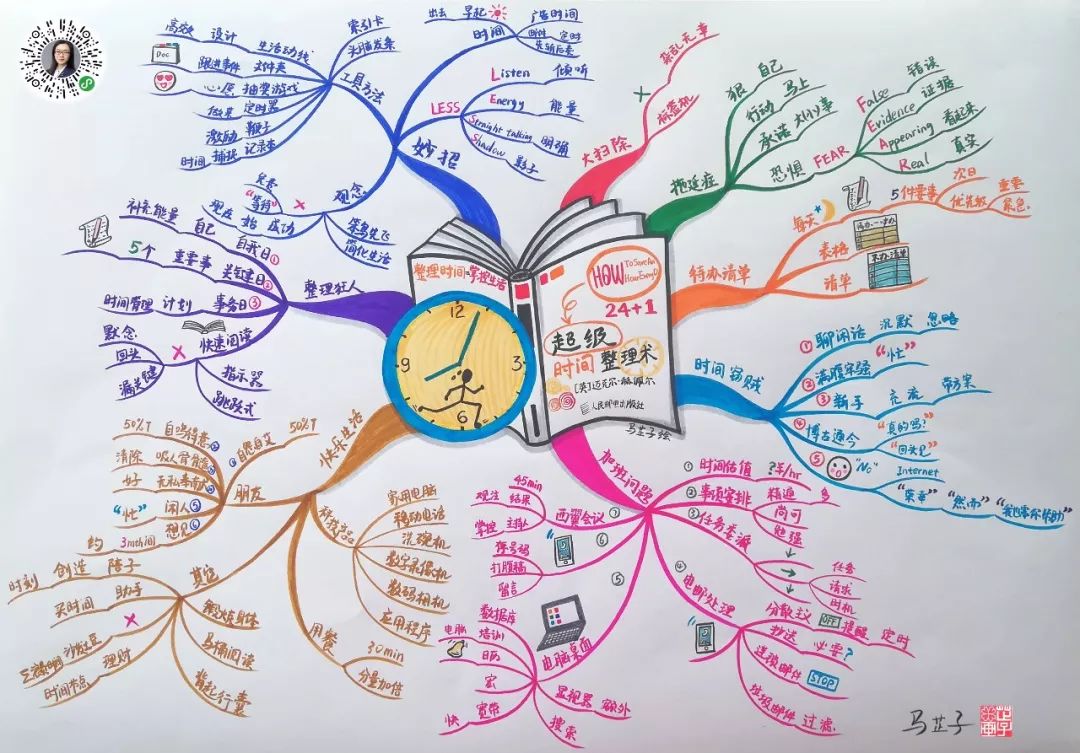 整理时间·掌控生活
12
3
6
9
HOW
To Save An
Hour Every D
24+1
超级
时间整理术
人民邮电出版社
马芷子绘
大扫除
杂乱无章
标签机
拖延症
狠 自己
行动 马上
承诺 大小事
恐惧 FEAR
False 错误
Evidence 证据
Appearing 看起来
Real 真实
待办清单
每天
5件要事
次日
优先级
重要
紧急
表格
清单
时间窃贼
① 聊闲话 沉默 忽略
② 满腹牢骚 "忙"
③ 新手 交流 带方案
④ 博古通今 "真的吗?"
"回头见"
⑤ "No" Internet
"荣幸" "然而"
加班问题
① 时间估值 ?¥/hr
② 事项安排 精通 多
尚可
勉强
③ 任务委派
任务
请求
时机
④ 电邮处理
分散主义 OFF 提醒 定时
抄送 必要?
连锁邮件 STOP
垃圾邮件 过滤
⑤ 电脑桌面
数据库
电脑 培训
日历
宏
快 宽带
显视器 额外
搜索
⑥
接号码
打腹稿
留言
⑦ 西翼会议
45min
观注 结果
掌控 主持人
快乐生活
用餐
30min
分量加倍
家用电脑
移动电话
洗碗机
数字录像机
数码相机
应用程序
其它
时刻 创造 陪子
买时间 助手
沙发土豆
理财
时间节点
锻炼身体
马桶阅读
背起行囊
朋友
50%T 自鸣得意
自怨自艾 50%T
清除 吸人骨髓
好 无私奉献
"忙" 闲人⑤
约 3mth间 想见⑥
整理狂人
补充能量 自己 自我日①
5个 重要事 关键日②
时间管理 计划 事务日③
快速阅读
默念
回头
漏关键
指示器
跳跃式
妙招
时间
出去 早起
广告时间
定时
LESS
Listen 倾听
Energy 能量
Straight talking 明确
Shadow 影子
观念
"等待"
现在 始 成功
笨鸟先飞
简化生活
工具方法
索引卡
头脑发条
高效 设计 生活动线
Doc 跟进事件 文件夹
心愿 抽奖游戏
做菜 定时器
激励 鞭子
时间 捕捉 记录本
马芷子